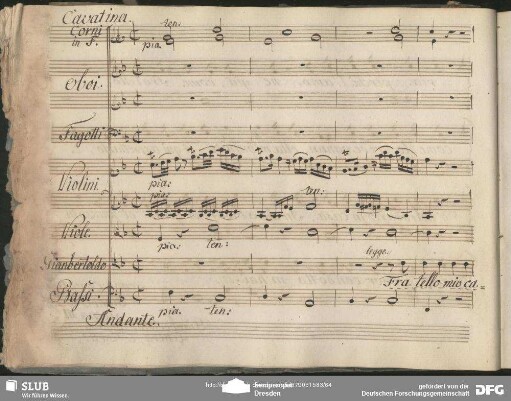 Cavatina.
Corni
in F.
ten.
pia
Oboi.
Fagotti
Violini
pia:
pia:
ten:
Viole.
pia: ten:
Gianbertoldo
Fra tello mio ca=
Bassi
pia. ten:
Andante.
SLUB
Wir führen Wissen.
Dresden
gefördert von der
Deutschen Forschungsgemeinschaft
DFG